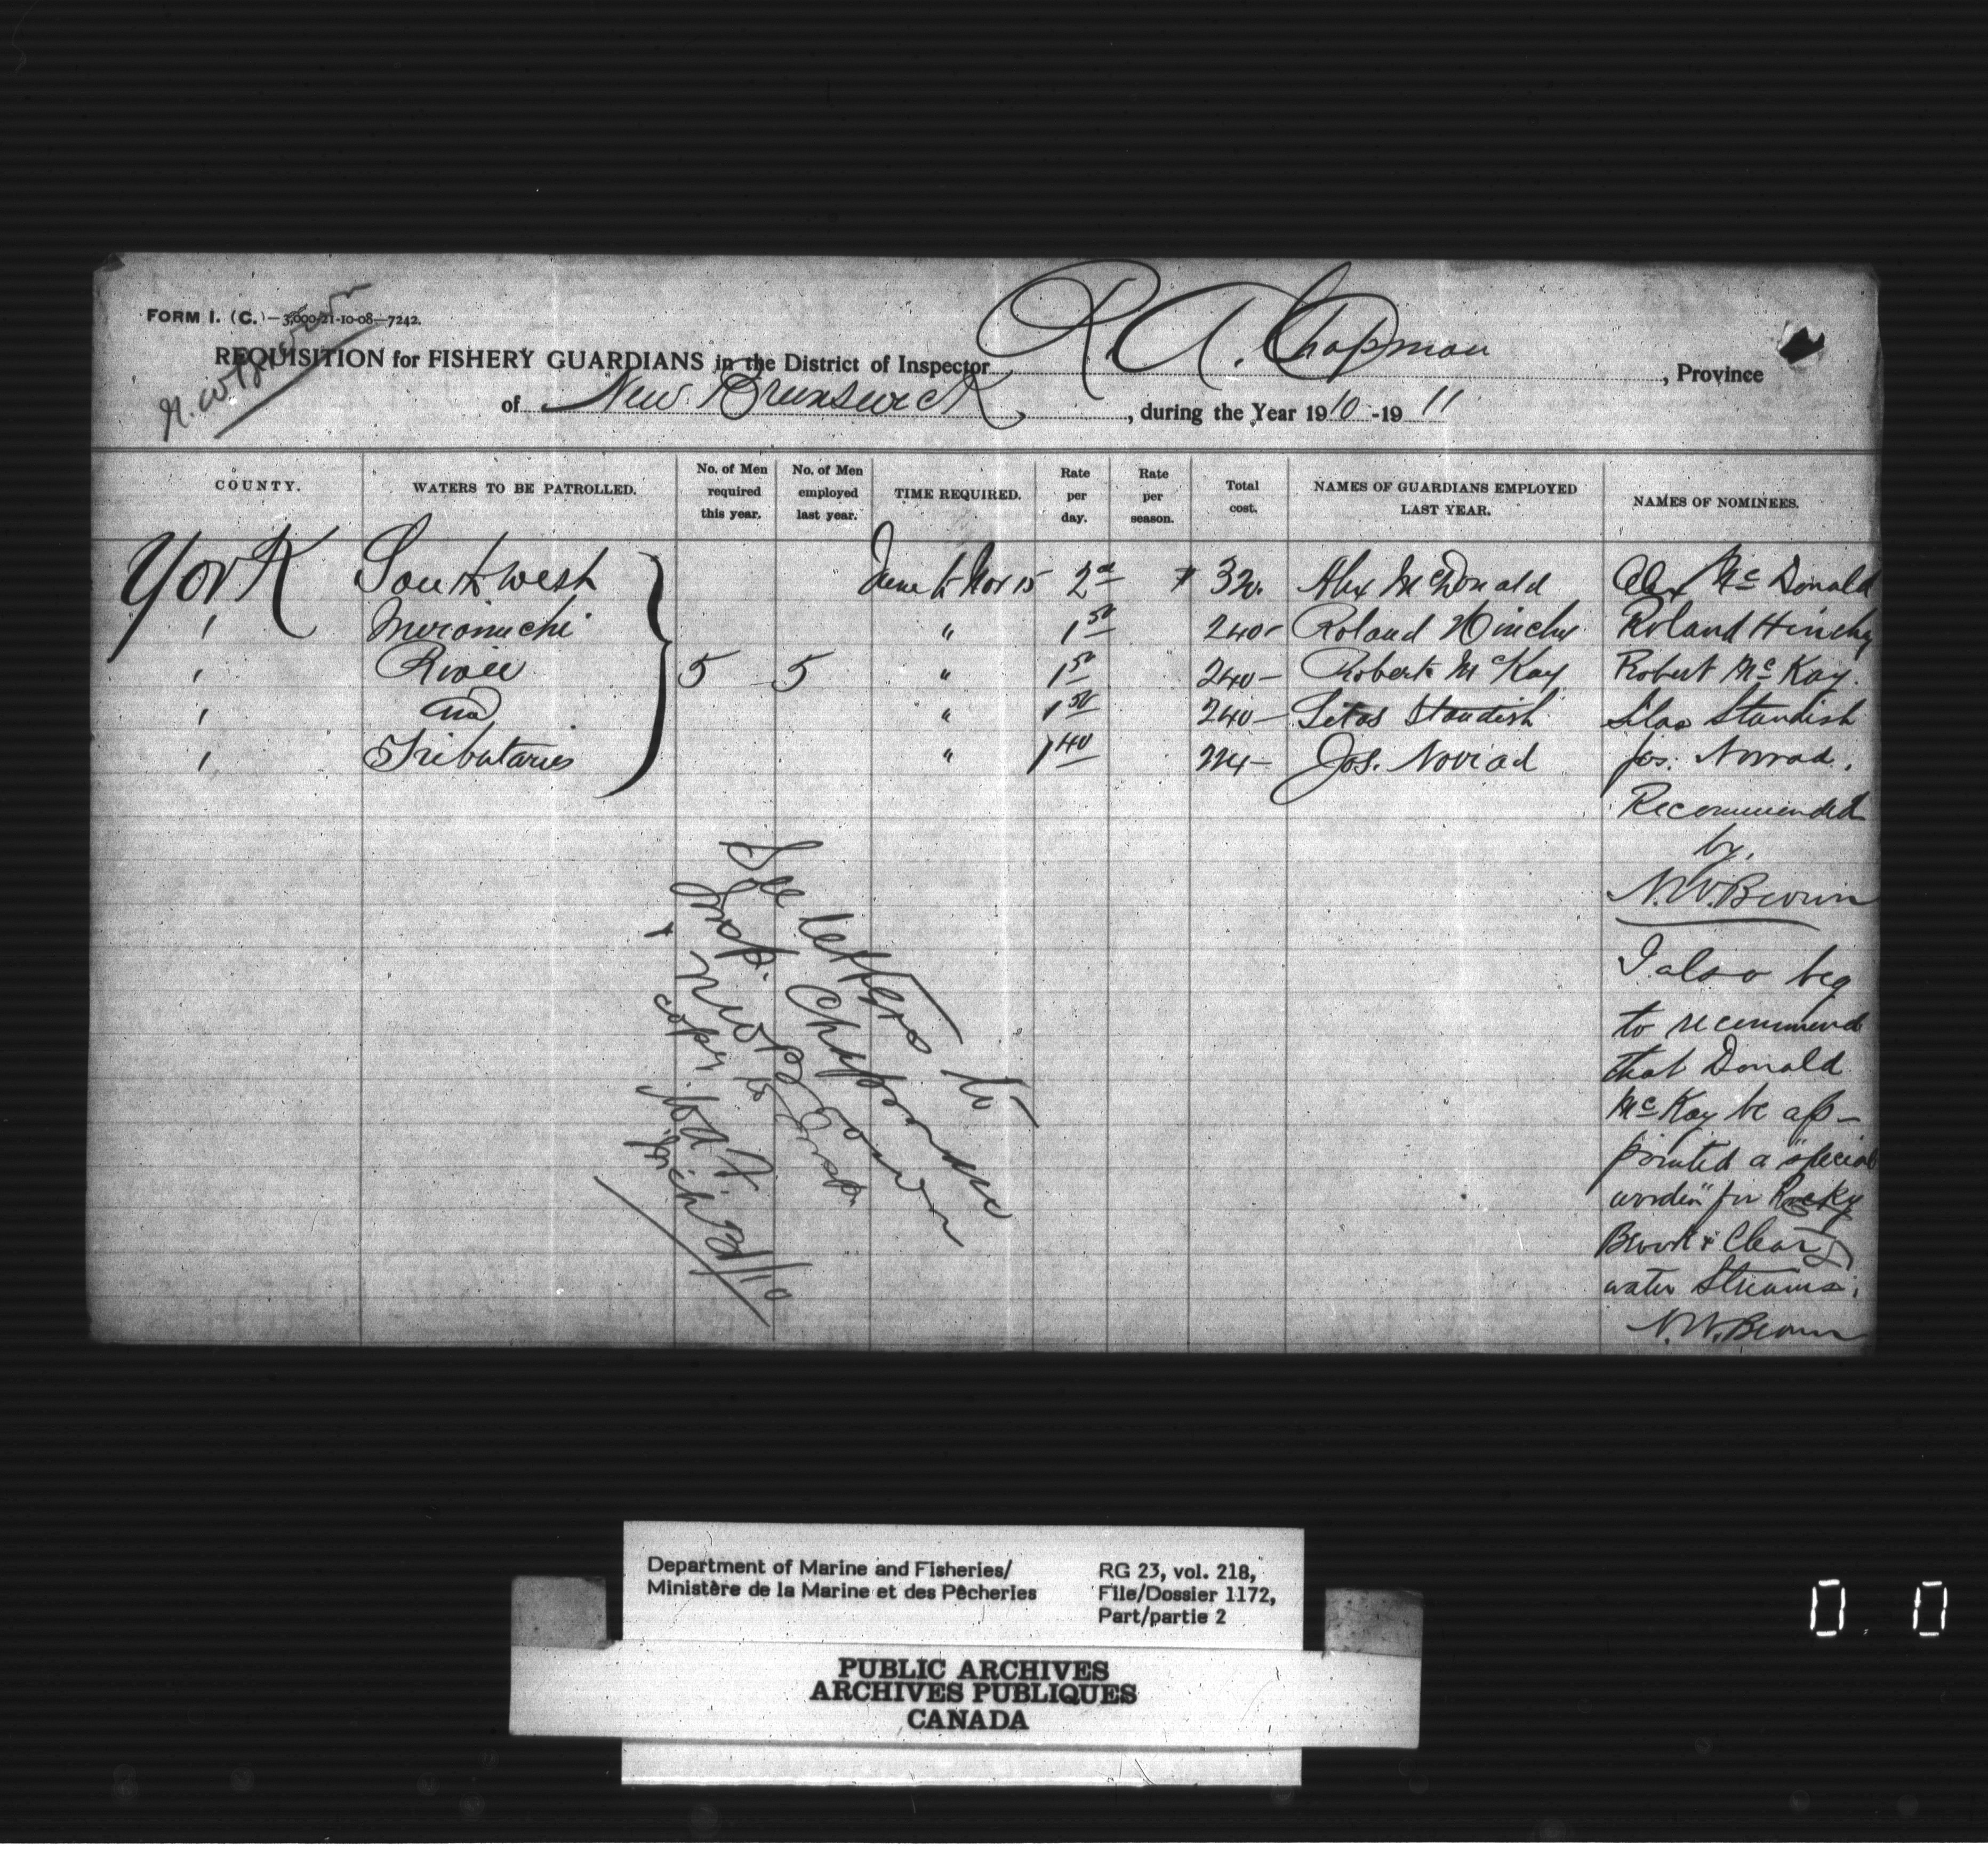 FORM I. (C.)—3,000-21-10-08—7242.
N. W. Brown
REQUISITION for FISHERY GUARDIANS in the District of Inspector R. A. Chapman, Province
of New Brunswick, during the Year 1910-1911
COUNTY. WATERS TO BE PATROLLED. No. of Men required this year. No. of Men employed last year. TIME REQUIRED. Rate per day. Rate per season. Total cost. NAMES OF GUARDIANS EMPLOYED LAST YEAR. NAMES OF NOMINEES.
York Southwest June to Nov 15 2 $ 320. Alex McDonald Alex McDonald
" Miramichi " 1 50 240- Roland Hinchy Roland Hinchy
" River 5 5 " 1 50 240- Robert McKay Robert McKay.
" and " 1 50 240- Silas Standish Silas Standish
" Tributaries " 1 40 224- Jos. Norrad Jos. Norrad.
Recommended
by.
N.W. Brown
I also beg
to recommend
that Donald
McKay be ap-
pointed a "special
warden" for Rocky
Brook & Clear
water Streams.
N.W. Brown
See letters to
Insp. Chapman
& N W Brown
copy to Insp.
Dept of Marine and Fisheries/
Department of Marine and Fisheries/
Ministère de la Marine et des Pêcheries
RG 23, vol. 218,
File/Dossier 1172,
Part/partie 2
PUBLIC ARCHIVES
ARCHIVES PUBLIQUES
CANADA
0 0